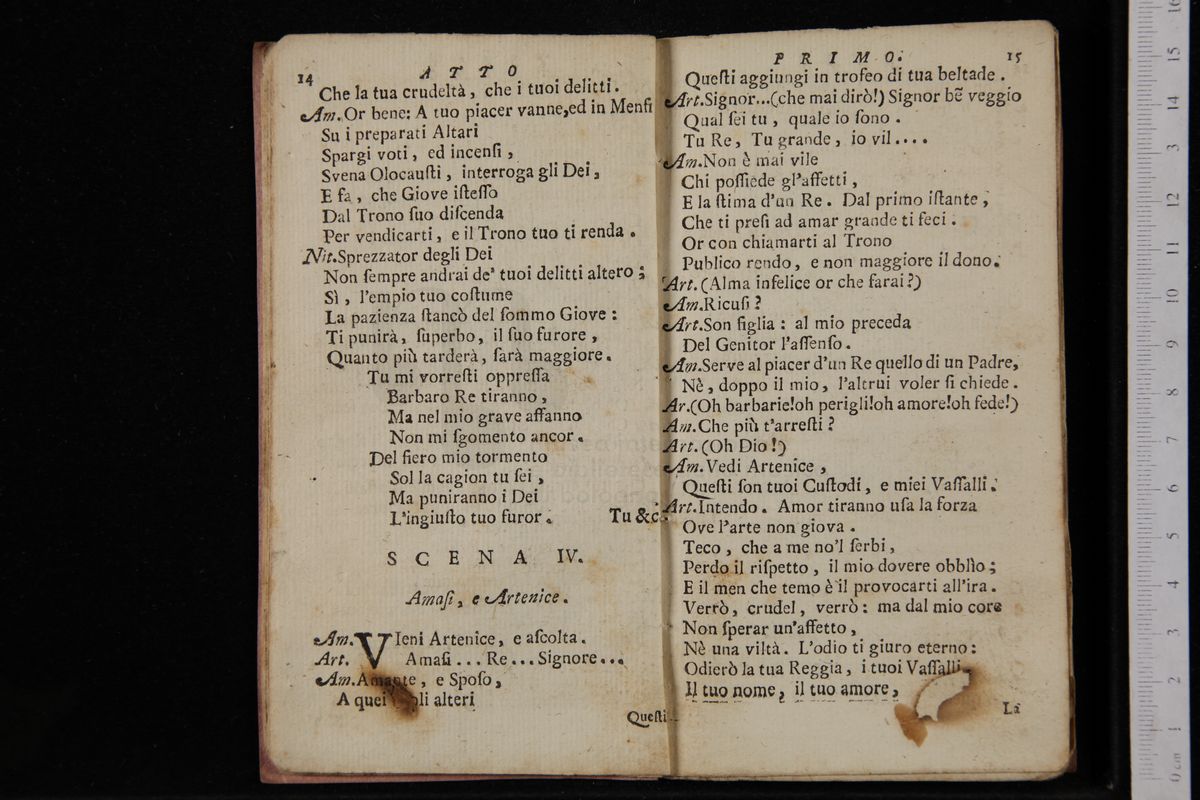 14 ATTO
Che la tua crudeltà, che i tuoi delitti.
Am. Or bene: A tuo piacer vanne, ed in Menfi
Su i preparati Altari
Spargi voti, ed incenſi,
Svena Olocauſti, interroga gli Dei,
E fa, che Giove iſteſſo
Dal Trono ſuo diſcenda
Per vendicarti, e il Trono tuo ti renda.
Nit. Sprezzator degli Dei
Non ſempre andrai de' tuoi delitti altero;
Sì, l'empio tuo coſtume
La pazienza ſtancò del ſommo Giove:
Ti punirà, ſuperbo, il ſuo furore,
Quanto più tarderà, ſarà maggiore.
Tu mi vorreſti oppreſſa
Barbaro Re tiranno,
Ma nel mio grave affanno
Non mi ſgomento ancor.
Del fiero mio tormento
Sol la cagion tu ſei,
Ma puniranno i Dei
L'ingiuſto tuo furor. Tu &c.
SCENA IV.
Amaſi, e Artenice.
Am. VIeni Artenice, e aſcolta.
Art. Amaſi... Re... Signore...
Am. Amante, e Spoſo,
A quei alteri
Queſti
PRIMO. 15
Queſti aggiungi in trofeo di tua beltade.
Art. Signor...(che mai dirò!) Signor bẽ veggio
Qual ſei tu, quale io ſono.
Tu Re, Tu grande, io vil....
Am. Non è mai vile
Chi poſſiede gl'affetti,
E la ſtima d'un Re. Dal primo iſtante,
Che ti preſi ad amar grande ti feci.
Or con chiamarti al Trono
Publico rendo, e non maggiore il dono.
Art. (Alma infelice or che farai?)
Am. Ricuſi?
Art. Son figlia: al mio preceda
Del Genitor l'aſſenſo.
Am. Serve al piacer d'un Re quello di un Padre,
Nè, doppo il mio, l'altrui voler ſi chiede.
Ar. (Oh barbarie! oh perigli! oh amore! oh fede!)
Am. Che più t'arreſti?
Art. (Oh Dio!)
Am. Vedi Artenice,
Queſti ſon tuoi Cuſtodi, e miei Vaſſalli.
Art. Intendo. Amor tiranno uſa la forza
Ove l'arte non giova.
Teco, che a me no'l ſerbi,
Perdo il riſpetto, il mio dovere obblìo;
E il men che temo è il provocarti all'ira.
Verrò, crudel, verrò: ma dal mio core
Non ſperar un'affetto,
Nè una viltà. L'odio ti giuro eterno:
Odierò la tua Reggia, i tuoi Vaſſalli,
Il tuo nome, il tuo amore,
La